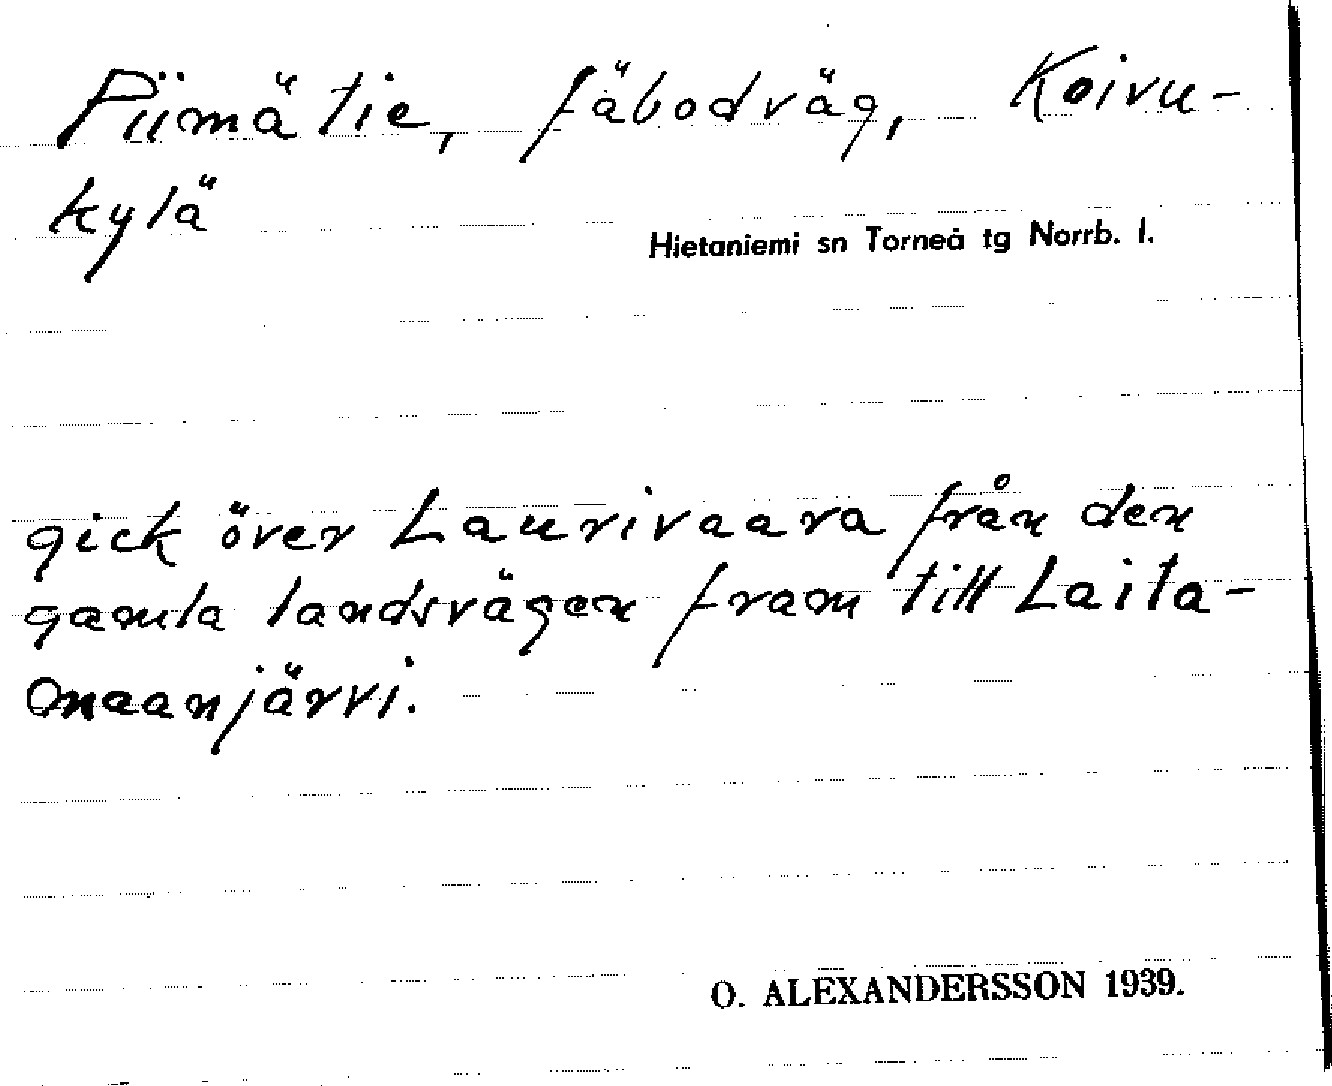 Piimätie, fäbodväg, Koivu-
kylä
Hietaniemi sn Torneå tg Norrb. l.
gick över Laurivaara från den
gamla landsvägen fram till Laita-
maanjärvi.
O. ALEXANDERSSON 1939.